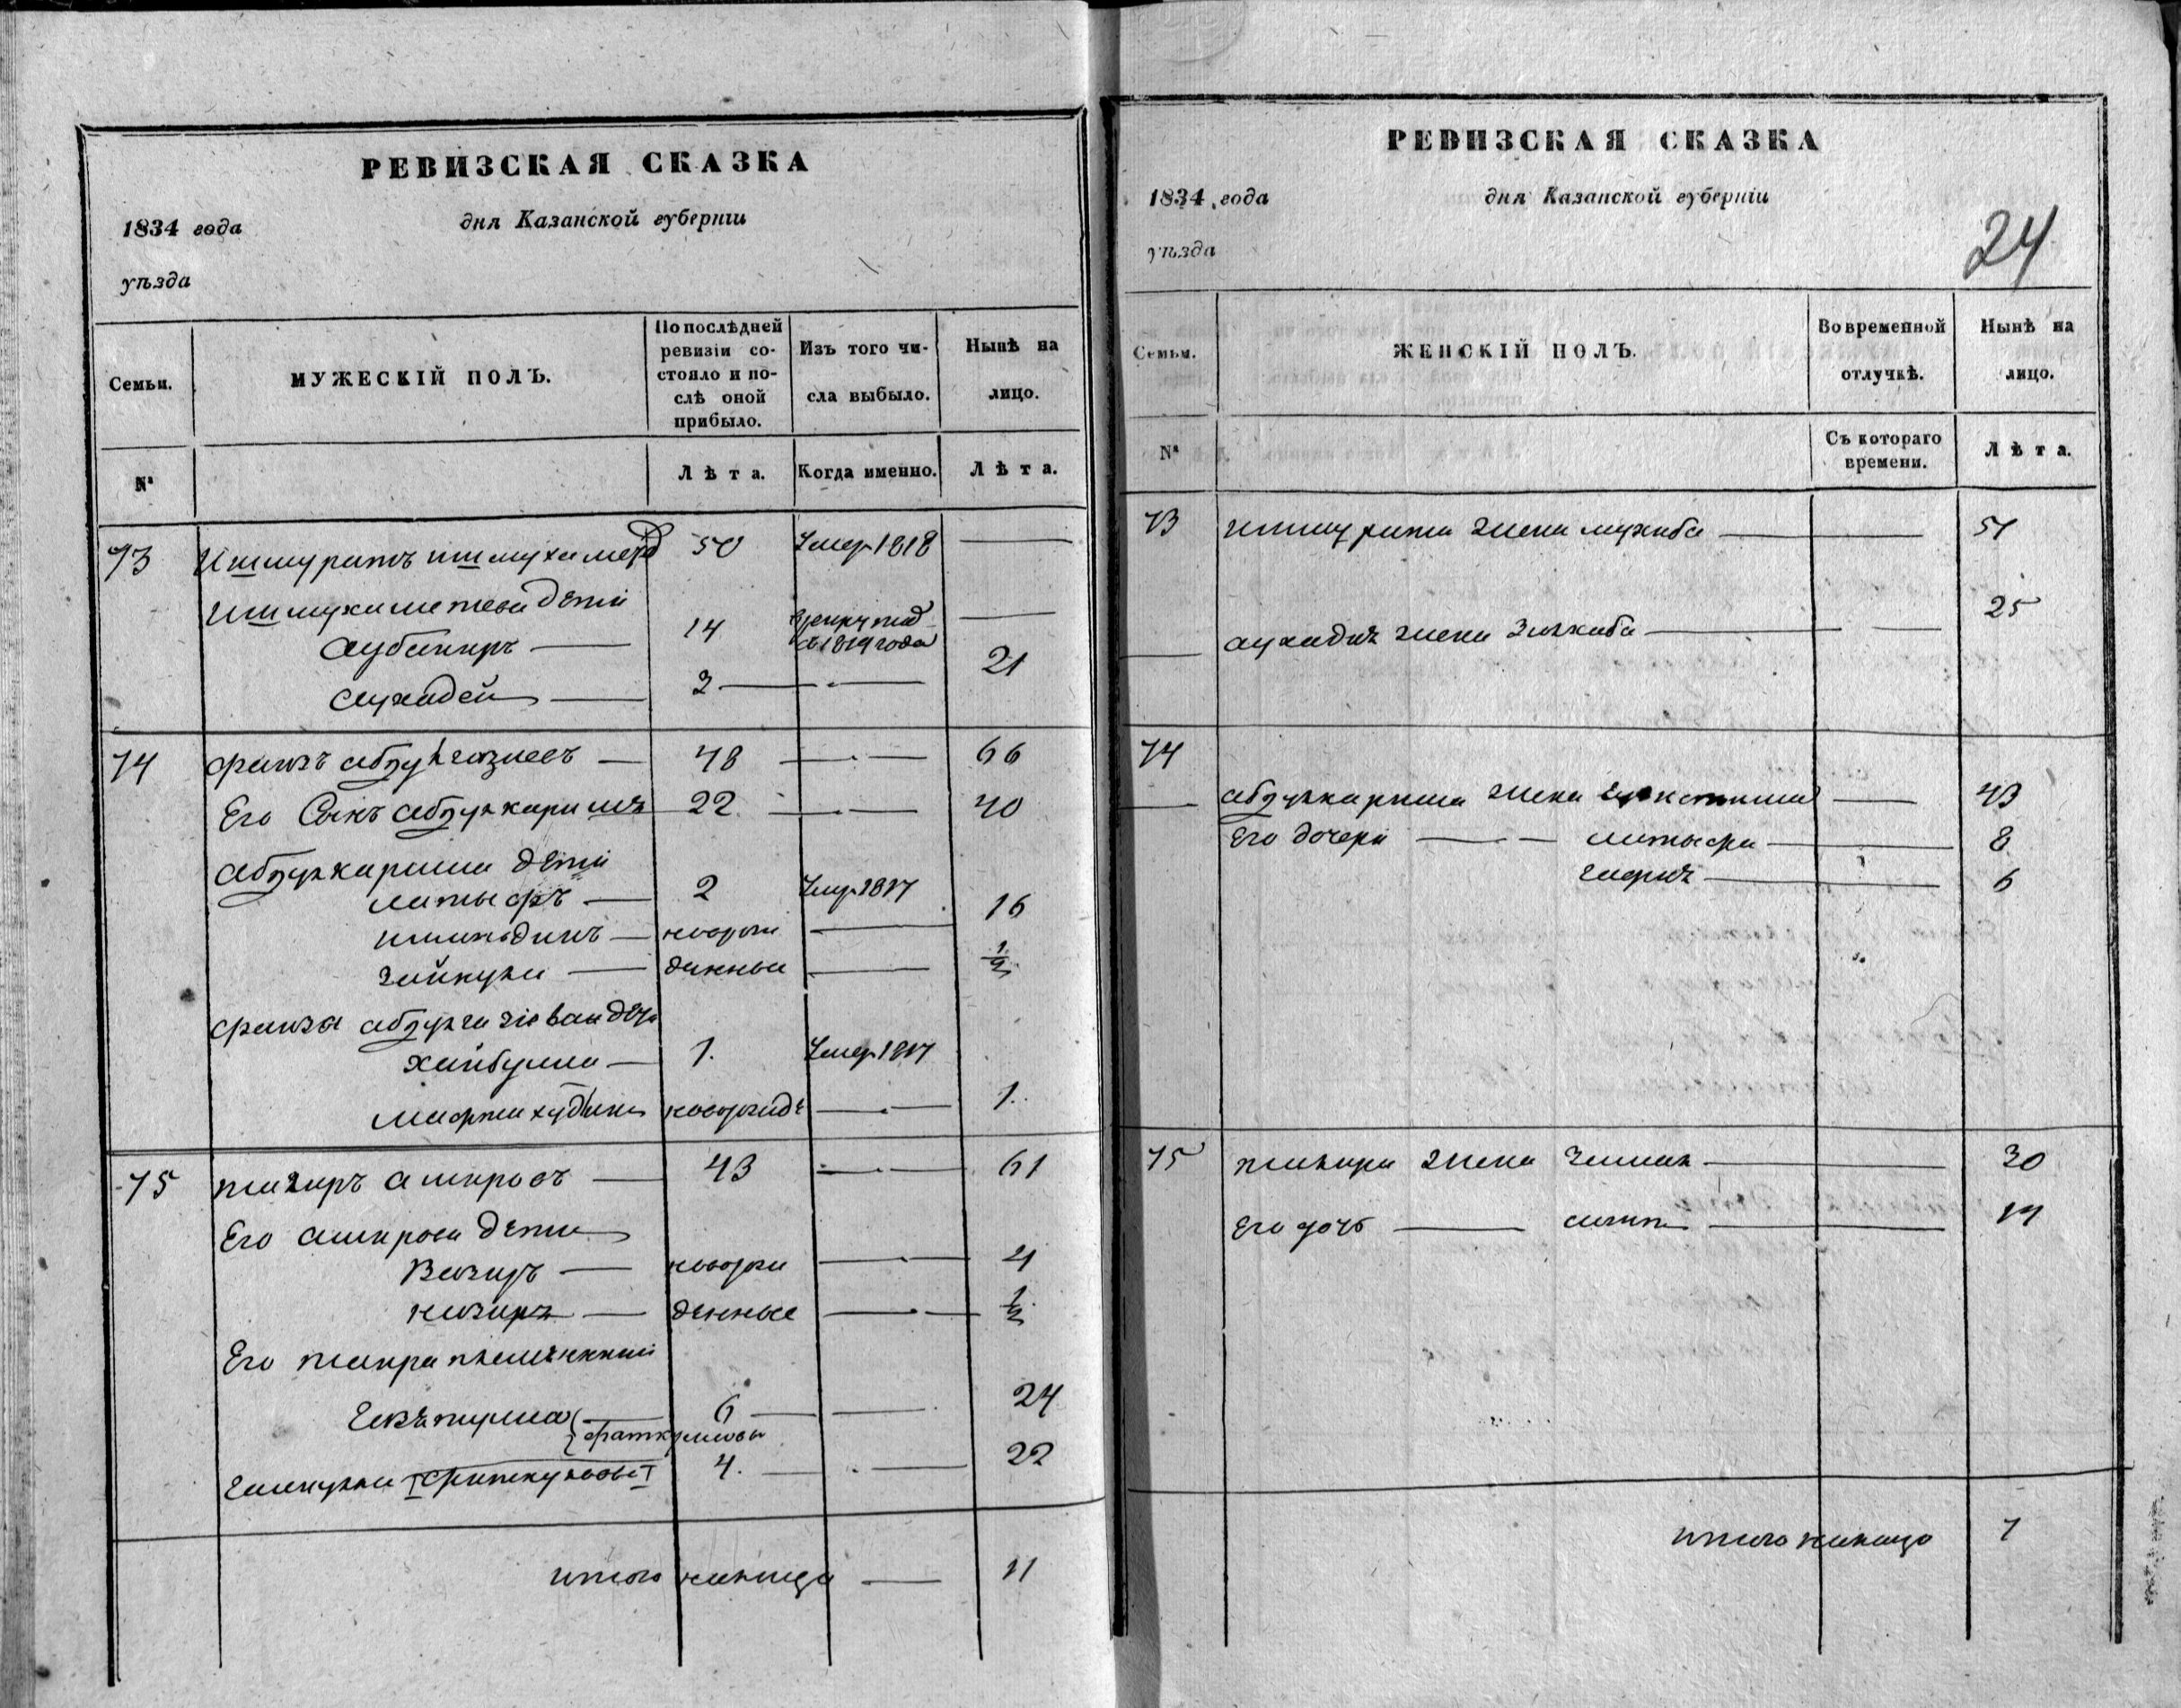 РЕВИЗСКАЯ СКАЗКА
1834 года дня Казанской губерніи
уѣзда
Семьи. МУЖЕСКІЙ ПОЛЪ. По послѣдней ревизіи состояло и послѣ оной прибыло. Изъ того числа выбыло. Нынѣ на лицо.
№ Лѣта. Когда именно. Лѣта.
73 Ишмуратъ ишмухамет 50 Умер 1818
Ишмухаметева дети
аубакиръ 14 в рекруты с 1819 года
3 21
74 фаизъ абдулгазиевъ 48 66
Его Сынъ абдулкаримъ 22 40
абдулкарима дети
латыфъ 2 Умер 1817
новорож 16
зайнулла денные 1/2
фаиза абдулгазіева дети
хайбулла 1. Умер 1817
мифтахудинъ новорожде 1.
75 тагиръ амировъ 43 61
Его амирова дети
Вазиръ новорож 4
назиръ денные 1/2
Его тагира племянники
6 24
фаткуловы
фаткуловы 4. 22
итого налицо 11
РЕВИЗСКАЯ СКАЗКА
1834 года дня Казанской губерніи
уѣзда
24
Семьи. ЖЕНСКІЙ ПОЛЪ. Во временной отлучкѣ. Нынѣ на лицо.
№ Съ котораго времени. Лѣта.
73 ишмурата жена мухиба 51
жена 25
74
абдулкарима жена 43
Его дочери латыфа 8
6
75 тагира жена 30
Его дочь
итого налицо 7